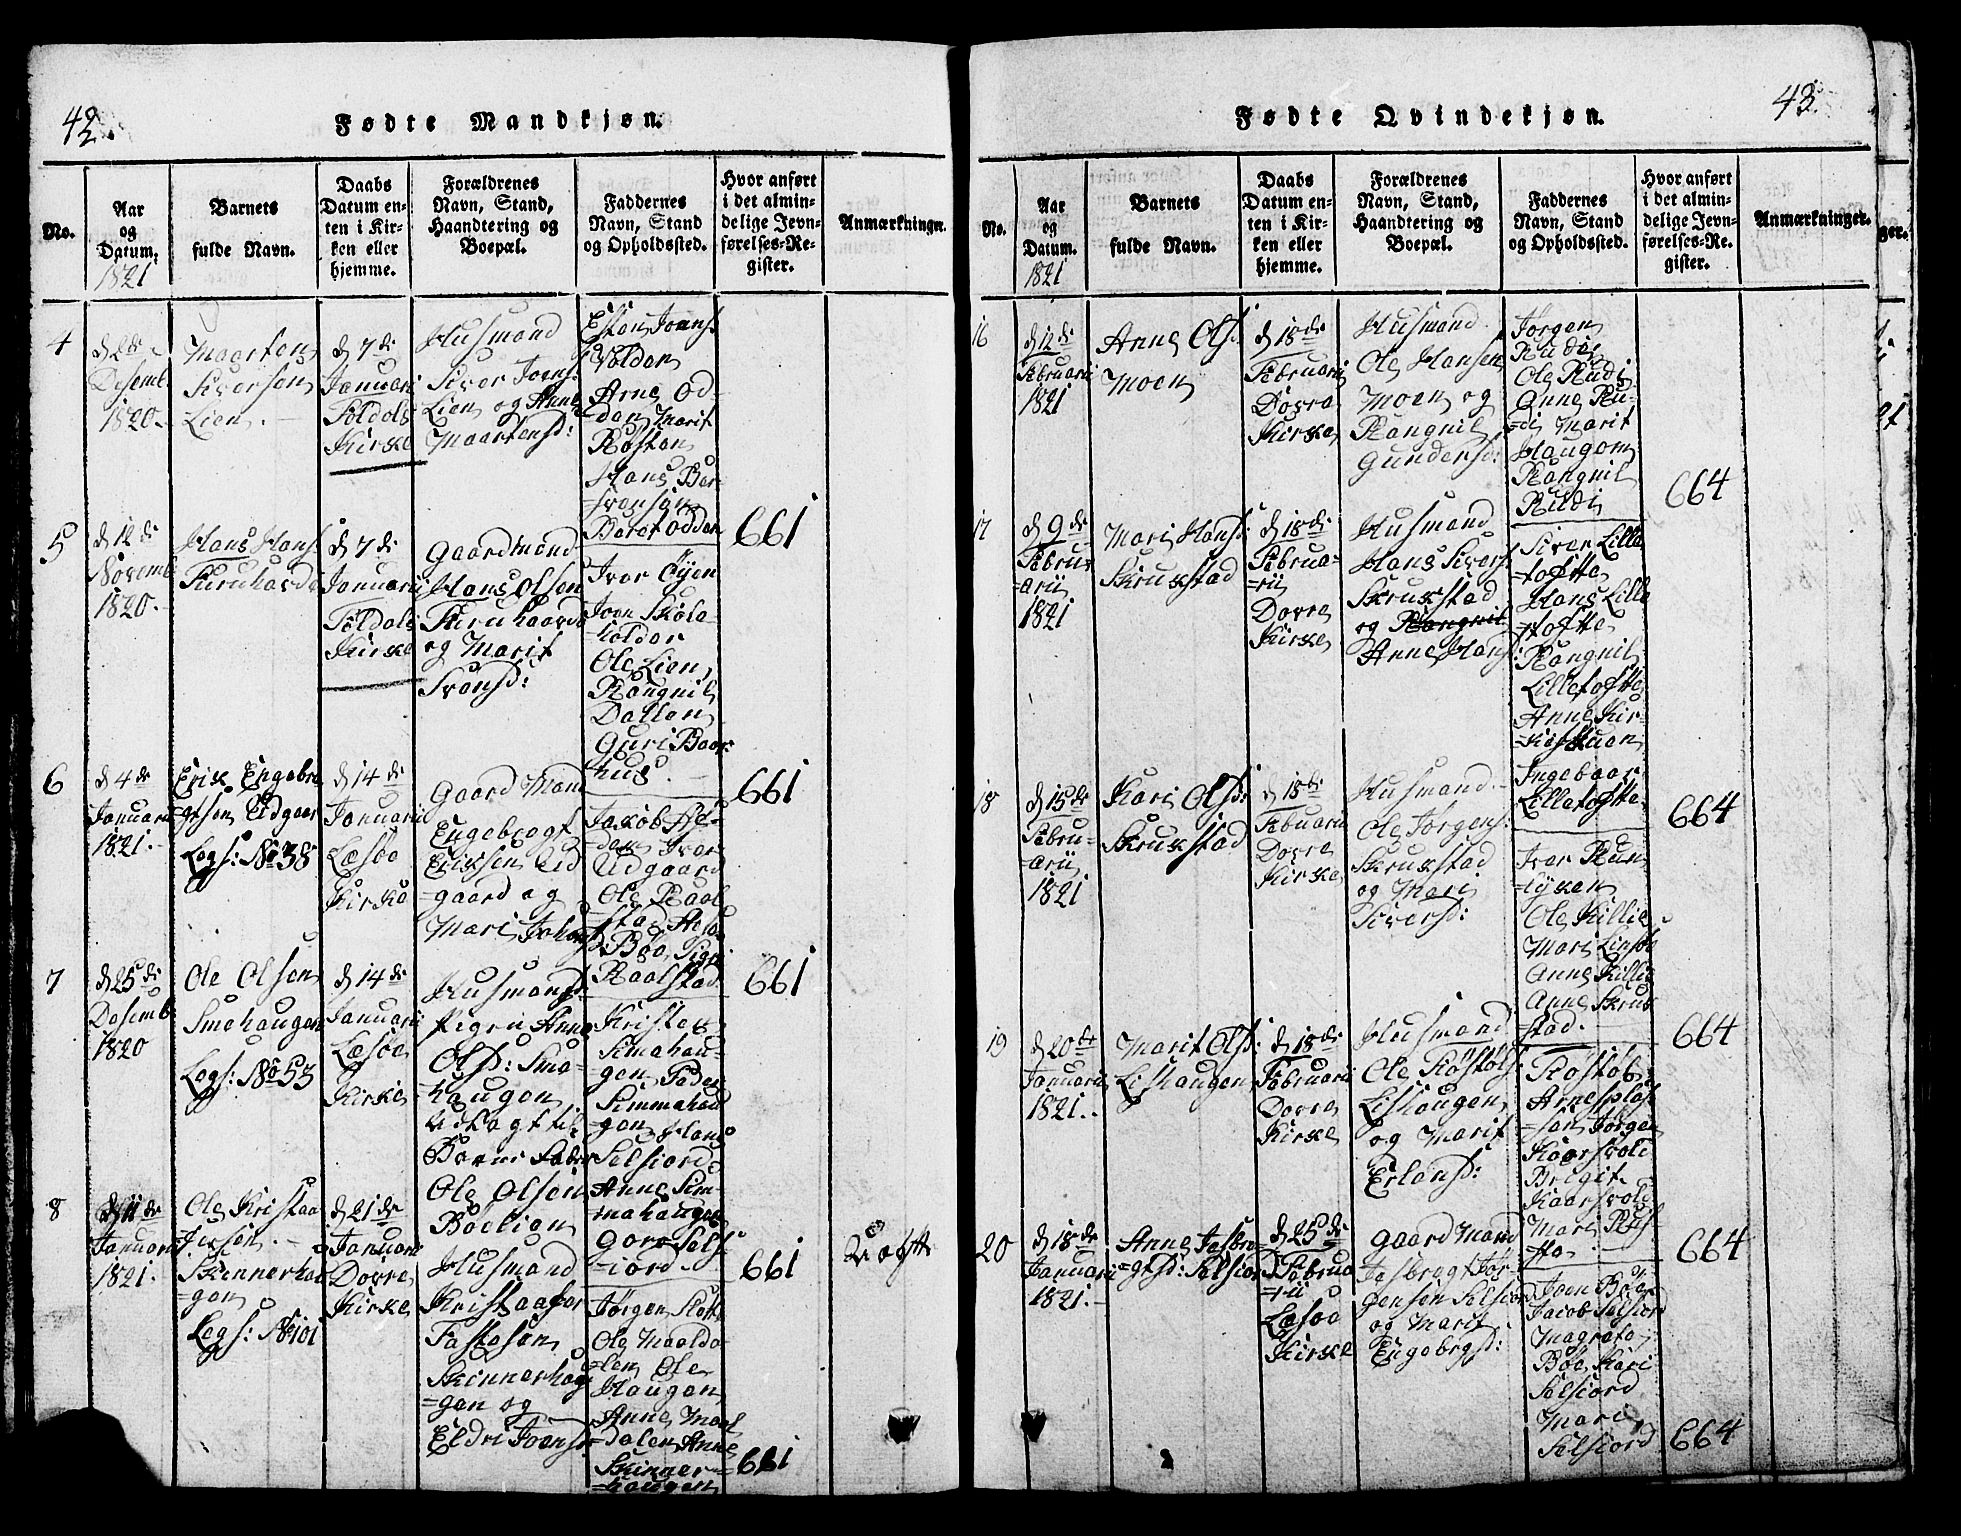 42.
Fødte Mandkjøn.
No.
Aar
og
Datum.
1821
Barnets
fulde Navn.
Daabs
Datum en-
ten i Kir-
ken eller
hjemme.
Forældrenes
Navn, Stand,
Haandtering og
Boepæl.
Faddernes
Navn, Stand
og Opholdssted.
Hvor anført
i det almin-
delige Jevn-
førelses-Re-
gister.
Anmærkninger.
4
Desemb.
1820.
Maarten
Siversen
Lien.
d 7 de
Januarii
Foldals
Kirke
Husmand
Siver Joens:
Lien og Anne
Maartensd:
Esten Joens:
Volden
Arne Od-
den, Marit
Rosten
Hans Ber-
Beret Odden
661
5
d 12 de
Novemb
1820.
Hans Hans:
Furuhovde
d 7 de
Januarii
Foldals
Kirke
Gaardmand
Hans Olsen
Furuhaavde
og Marit
Svensd:
Ivar Öyen
Joen
Ole Lien
Rangnil
Dallen
Guri Baar-
hus.
661
6
d 4 de
Januarii
1821.
Erik Engebre
gtsen Udgaar
Legs: No 38
d 14 de
Januarii
Lesöe
Kirke
Gaard Mand
Engebregt
Erixsen Ud
=gaard og
Mari
Jakob
Ivar
Udgaard
Ole Raol
=stad
Böe, Sigri
Raolstad
661
7
d 25 de
Desemb
1820
Ole Olsen
Smehaugen
Legs: No 53
d 14 de
Januarii
Lesöe
Kirke
Husmand
Pigen Anne
Olsd: Sme-
haugen
Udlagt til
Barne Fader
Ole Olsen
Böelien
Simahau-
gen, Peder
Simmahau
gen Hans
Selsiord
Anne Sim-
mahaugen
Goro Sels
=iord
661
Uægtte
8
d 11 de
Januarii
1821.
Ole Kristaa
fersen
Skinnerhau
=gen
Legs: No 101
d 21 de
Januarii
Dovre
Kirke
Husmand
Kristaafer
Fastesen
Skinnerhau
=gen og
Eldri Joensd:
Jørgen
Ole Maalda-
=len, Ole
Haugen
Anne Maal
dalen, Anne
Skinner=
=haugen
661
43.
Fødte Qvindekjøn.
No.
Aar
og
Datum.
1821
Barnets
fulde Navn.
Daabs
Datum en-
ten i Kir-
ken eller
hjemme.
Forældrenes
Navn, Stand,
Haandtering og
Boepæl.
Faddernes
Navn, Stand
og Opholdssted.
Hvor anført
i det almin-
delige Jevn-
førelses-Re-
gister.
Anmærkninger.
16
d 12 de
Februarii
1821
Anne Olsd:
Moen
d 18 de
Februarii
Dovre
Kirke
Husmand
Ole Hansen
Moen og
Rangnil
Gundersd:
Jørgen
Rudi
Ole Rudi
Anne Ru-
=di Marit
Haugom
Rangnil
Rudi
664
17
d 9 de
Febru
=arii
1821
Mari Hansd:
Skrukstad
d 18 de
Februa-
=rii
Dovre
Kirke
Husmand
Hans Sivers:
Skrukstad
og Rangnil
Anne Hans:
Siver Lille
=tofte
Hans Lille
=tofte
Rangnil
Lilletofte
Anne Kir-
=kestuen
Ingebaar
Lilletofte
664
18
d 15 de
Febru-
=arii
1821
Kari Olsd:
Skrukstad
d 18 de
Februarii
Dovre
Kirke
Husmand
Ole Jørgens:
Skrukstad
og Mari
Siversd:
Ivar Run-
=gyken
Ole Killie
Mari Linsöe
Anne Killie
Anne Skruk
=stad.
664
19
d 20 de
Januarii
1821.
Marit Olsd:
Lishaugen
d 18 de
Februarii
Dovre
Kirke
Husmand
Ole
Lishaugen
og Marit
Erlansd:
Jørgen
Kaarsvold
Brigit
Kaarsvold
Mari
664
20
d 18 de
Januarii
1821.
Anne Jesbre
=gtsd: Selsior
d 25 de
Februa
=rii
Lesöe
Kirke
Gaard Mand
Jesbregt Jør
gensen Selsiord
og Marit
Engebrgsd:
Joen Böe
Jacob Selsiord
Magrete
Böe, Kari
Selsiord
Mari
Selsiord
664